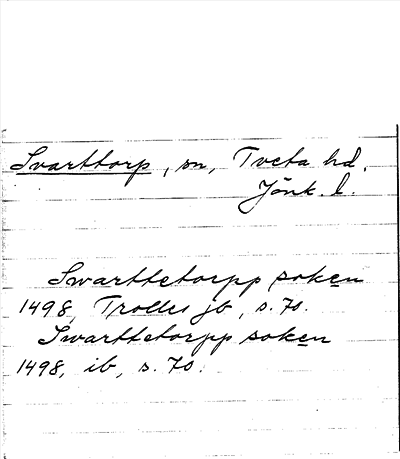 Svarttorp, sn, Tveta hd.
Jönk. l.
Swarttetorpp soken
1498, Trolles jb, s. 70.
Swarttetorpp soken
1498, ib, s. 70.